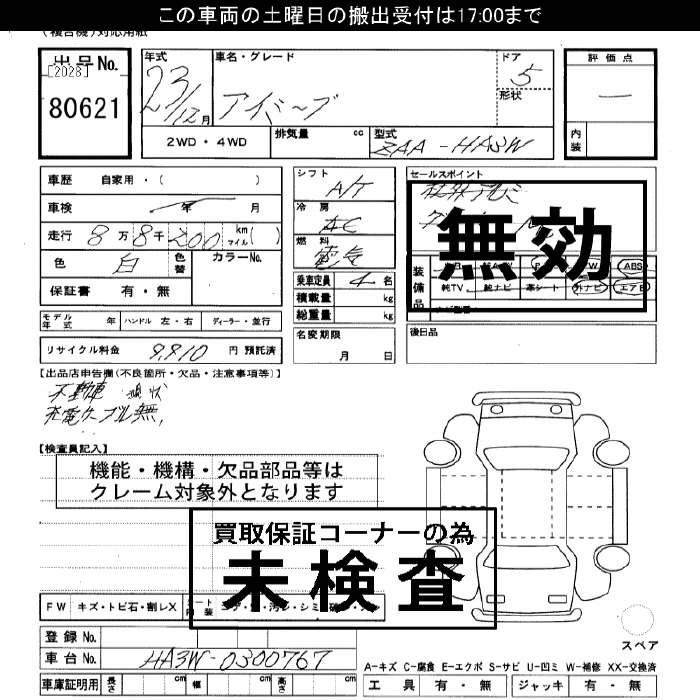 この車両の土曜日の搬出受付は17:00まで
(複合機)対応用紙
出品No.
[2028]
80621
年式
23/12月
車名・グレード
アイミーブ
ドア
5
形状
評価点
―
内装
2WD・4WD
排気量 cc
型式
ZAA-HA3W
車歴 自家用・( )
車検 年 月
走行 8万8千200 km マイル( )
色 白 色替 カラーNo.
保証書 有・無
シフト A/T
冷房 AC
燃料 電気
乗車定員 4名
積載量 kg
総重量 kg
セールスポイント
社外アルミ
無効
装備品
ABS
純TV 純ナビ 革シート 外ナビ エアB
モデル年式 年 ハンドル 左・右 ディーラー・並行
リサイクル料金 9,910 円 預託済
名変期限
月 日
後日品
【出品店申告欄(不良箇所・欠品・注意事項等)】
不動車 現状
充電ケーブル無
【検査員記入】
機能・機構・欠品部品等は
クレーム対象外となります
買取保証コーナーの為
未検査
FW キズ・トビ石・割レX
登録No.
車台No. HA3W-0300767
車庫証明用 長さ cm 幅 cm 高さ cm
スペア
A-キズ C-腐食 E-エクボ S-サビ U-凹ミ W-補修 XX-交換済
工具 有・無 ジャッキ 有・無